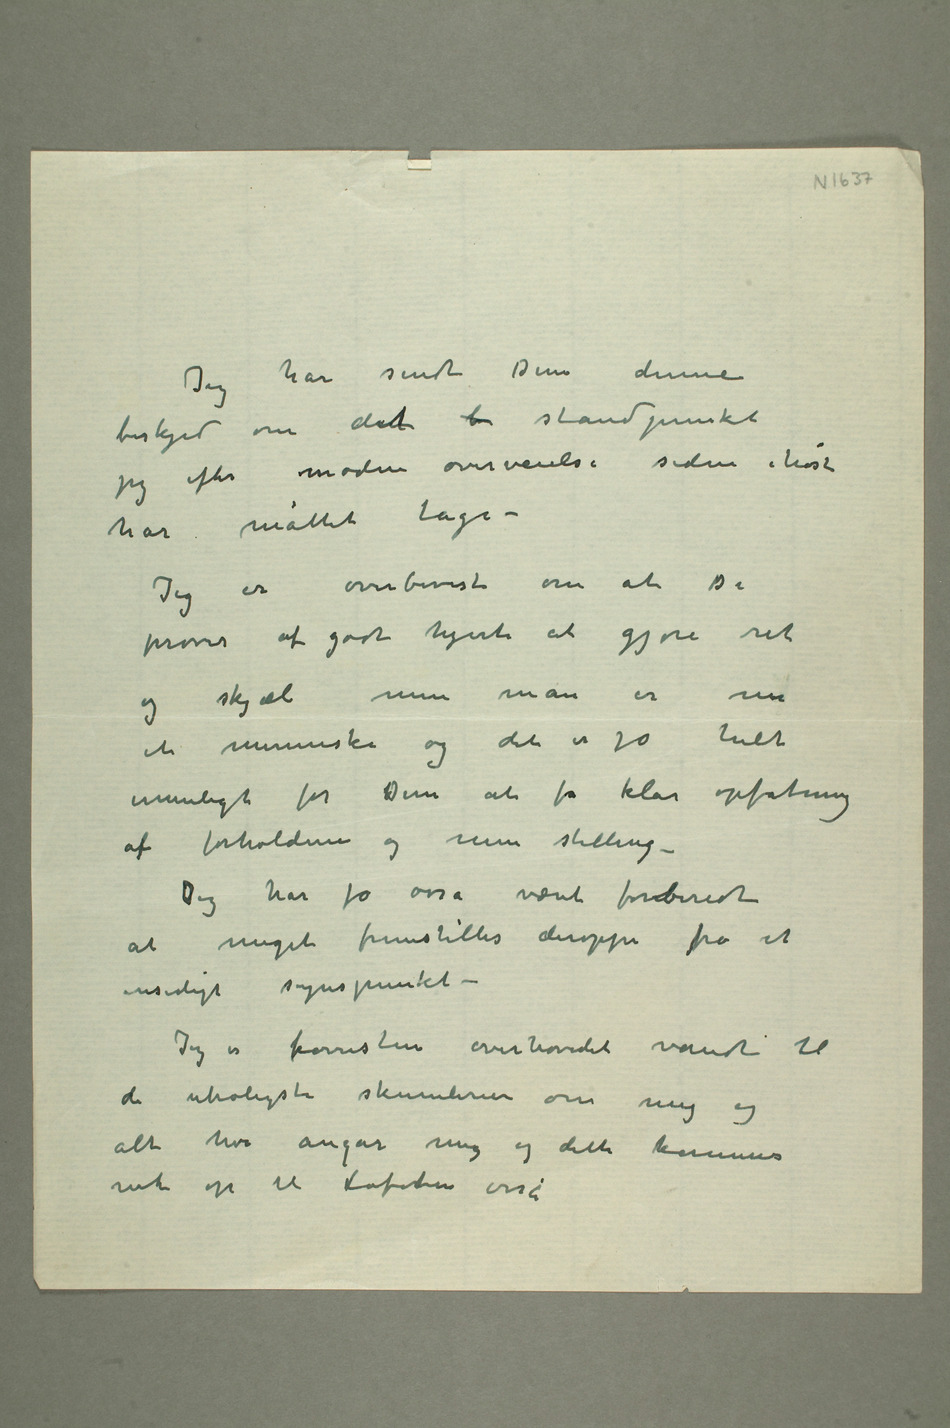 N1637
Jeg har sendt Dem denne
beskjed om det standpunkt
jeg efter moden overveielse siden ihøst
har måttet tage –
Jeg er overbevist om at De
prøver af godt hjerte at gjøre ret
og skjæl men man er nu
et menneske og det er jo helt
umuligt for Dem at få klar opfatning
af forholdene og min stilling –
Jeg har jo osså været forberedt
at meget fremstilles deroppe fra et
ensidigt synspunkt –
Jeg er forresten overhovedet vandt til
de utroligste skumlerier om mig og
alt hva angår mig og dette kommer
nok op til Lofoten osså